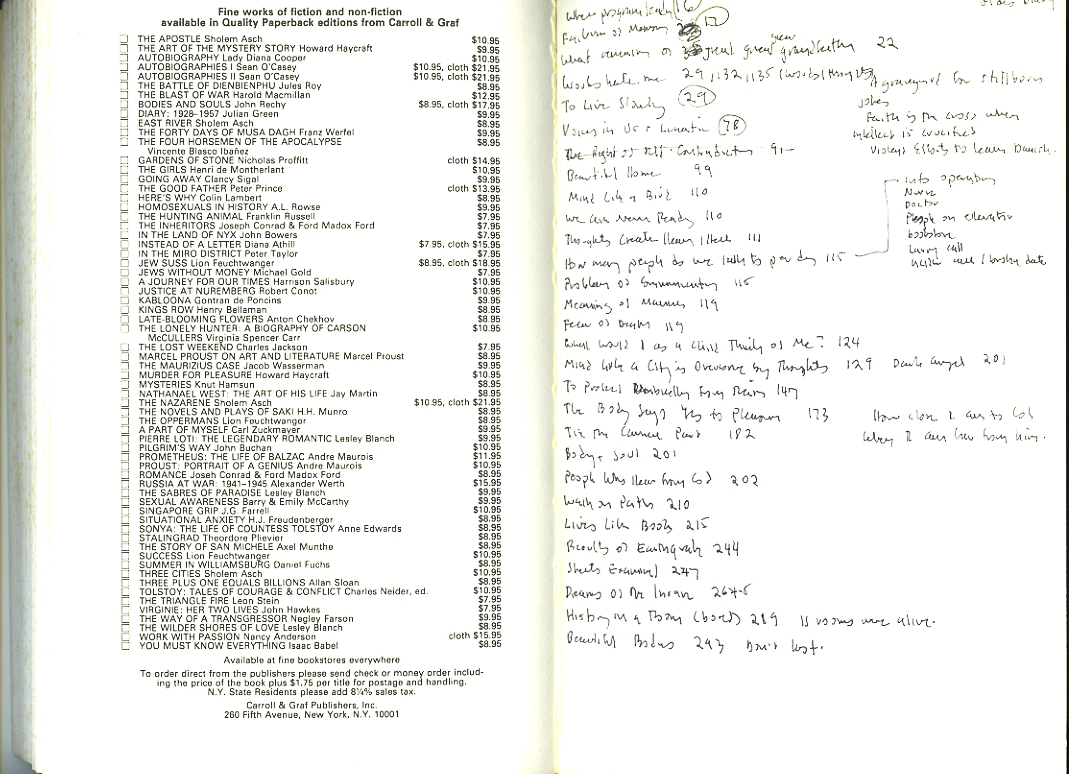 Fine works of fiction and non-fiction
available in Quality Paperback editions from Carroll & Graf
THE APOSTLE Sholem Asch $10.95
THE ART OF THE MYSTERY STORY Howard Haycraft $9.95
AUTOBIOGRAPHY Lady Diana Cooper $10.95
AUTOBIOGRAPHIES I Sean O'Casey $10.95, cloth $21.95
AUTOBIOGRAPHIES II Sean O'Casey $10.95, cloth $21.95
THE BATTLE OF DIENBIENPHU Jules Roy $8.95
THE BLAST OF WAR Harold Macmillan $12.95
BODIES AND SOULS John Rechy $8.95, cloth $17.95
DIARY: 1928–1957 Julian Green $9.95
EAST RIVER Sholem Asch $8.95
THE FORTY DAYS OF MUSA DAGH Franz Werfel $9.95
THE FOUR HORSEMEN OF THE APOCALYPSE $8.95
Vincente Blasco Ibañez
GARDENS OF STONE Nicholas Proffitt cloth $14.95
THE GIRLS Henri de Montherlant $10.95
GOING AWAY Clancy Sigal $9.95
THE GOOD FATHER Peter Prince cloth $13.95
HERE'S WHY Colin Lambert $8.95
HOMOSEXUALS IN HISTORY A.L. Rowse $9.95
THE HUNTING ANIMAL Franklin Russell $7.95
THE INHERITORS Joseph Conrad & Ford Madox Ford $7.95
IN THE LAND OF NYX John Bowers $7.95
INSTEAD OF A LETTER Diana Athill $7.95, cloth $15.95
IN THE MIRO DISTRICT Peter Taylor $7.95
JEW SUSS Lion Feuchtwanger $8.95, cloth $18.95
JEWS WITHOUT MONEY Michael Gold $7.95
A JOURNEY FOR OUR TIMES Harrison Salisbury $10.95
JUSTICE AT NUREMBERG Robert Conot $10.95
KABLOONA Gontran de Poncins $9.95
KINGS ROW Henry Bellaman $8.95
LATE-BLOOMING FLOWERS Anton Chekhov $8.95
THE LONELY HUNTER: A BIOGRAPHY OF CARSON $10.95
McCULLERS Virginia Spencer Carr
THE LOST WEEKEND Charles Jackson $7.95
MARCEL PROUST ON ART AND LITERATURE Marcel Proust $8.95
THE MAURIZIUS CASE Jacob Wasserman $9.95
MURDER FOR PLEASURE Howard Haycraft $10.95
MYSTERIES Knut Hamsun $8.95
NATHANAEL WEST: THE ART OF HIS LIFE Jay Martin $8.95
THE NAZARENE Sholem Asch $10.95, cloth $21.95
THE NOVELS AND PLAYS OF SAKI H.H. Munro $8.95
THE OPPERMANS Lion Feuchtwanger $8.95
A PART OF MYSELF Carl Zuckmayer $9.95
PIERRE LOTI: THE LEGENDARY ROMANTIC Lesley Blanch $9.95
PILGRIM'S WAY John Buchan $10.95
PROMETHEUS: THE LIFE OF BALZAC Andre Maurois $11.95
PROUST: PORTRAIT OF A GENIUS Andre Maurois $10.95
ROMANCE Joseh Conrad & Ford Madox Ford $8.95
RUSSIA AT WAR: 1941–1945 Alexander Werth $15.95
THE SABRES OF PARADISE Lesley Blanch $9.95
SEXUAL AWARENESS Barry & Emily McCarthy $9.95
SINGAPORE GRIP J.G. Farrell $10.95
SITUATIONAL ANXIETY H.J. Freudenberger $8.95
SONYA: THE LIFE OF COUNTESS TOLSTOY Anne Edwards $8.95
STALINGRAD Theordore Plievier $8.95
THE STORY OF SAN MICHELE Axel Munthe $8.95
SUCCESS Lion Feuchtwanger $10.95
SUMMER IN WILLIAMSBURG Daniel Fuchs $8.95
THREE CITIES Sholem Asch $10.95
THREE PLUS ONE EQUALS BILLIONS Allan Sloan $8.95
TOLSTOY: TALES OF COURAGE & CONFLICT Charles Neider, ed. $10.95
THE TRIANGLE FIRE Leon Stein $7.95
VIRGINIE: HER TWO LIVES John Hawkes $7.95
THE WAY OF A TRANSGRESSOR Negley Farson $9.95
THE WILDER SHORES OF LOVE Lesley Blanch $8.95
WORK WITH PASSION Nancy Anderson cloth $15.95
YOU MUST KNOW EVERYTHING Isaac Babel $8.95
Available at fine bookstores everywhere
To order direct from the publishers please send check or money order includ-
ing the price of the book plus $1.75 per title for postage and handling.
N.Y. State Residents please add 8¼% sales tax.
Carroll & Graf Publishers, Inc.
260 Fifth Avenue, New York, N.Y. 10001
Failures of Memory 17
What remains of great great grandfather 22
Words hate me 29, 132, 135 (words / thoughts)
A graveyard for stillborn
jokes
Faith is the cross when
intellect is crucified
Efforts to learn Danish.
To Live Slowly 29
Voices in Us 78
The Right of Self-Contradiction 91
Beautiful Home 99
Mind Like a Bird 110
We are Never Ready 110
Thoughts Create Heaven / Hell 111
How many people do we talk to per day 115
Info operator
Nurse
Doctor
People on elevator
bookstore
Larry call
Problem of 115
Meaning of 119
Fear of Death 119
What would I as a Child Think of Me? 124
Mind like a City is Overcome by Thoughts 129 Dark angel 201
To Protect from 147
The Body Says Yes to Pleasure 173
How close I am to God
When I am far from him.
182
Body + Soul 201
People Who Hear from God 202
Walk on Paths 210
Lives Like Books 215
Beauty of Earthquake 244
Streets Examined 247
Dreams of the Insane 264-5
History in a Room (bored) 289 If rooms were alive.
Beautiful Bodies 293 Don't last.